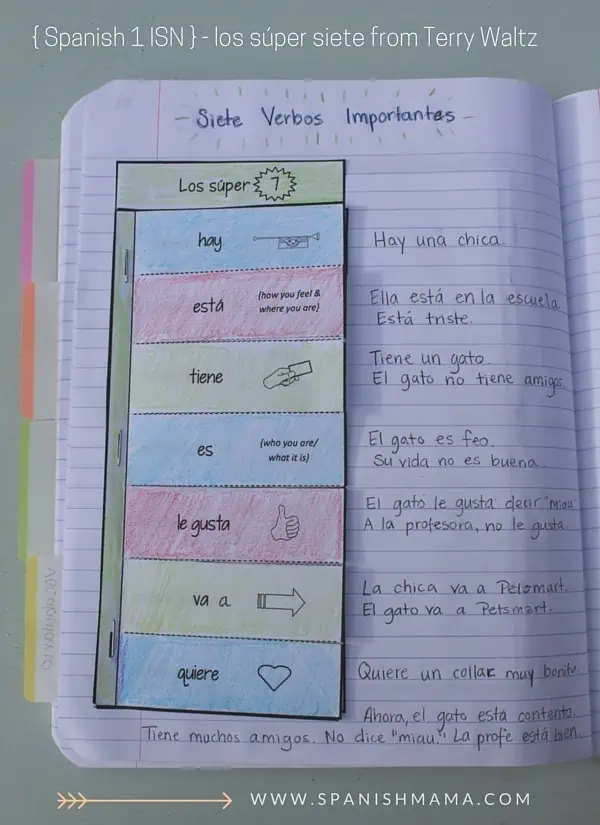 { Spanish 1 ISN } - los súper siete from Terry Waltz
- Siete Verbos Importantes -
Los súper 7
hay
Hay una chica.
está {how you feel &
where you are}
Ella está en la escuela.
Está triste.
tiene
Tiene un gato.
El gato no tiene amigos.
es {who you are/
what it is}
El gato es feo.
Su vida no es buena.
le gusta
El gato le gusta decir "miau"
A la profesora, no le gusta.
va a
La chica va a Petsmart.
El gato va a Petsmart.
quiere
Quiere un collar muy bonito.
Ahora, el gato está contento.
Tiene muchos amigos. No dice "miau." La profe está bien.
Vocabulario
WWW.SPANISHMAMA.COM